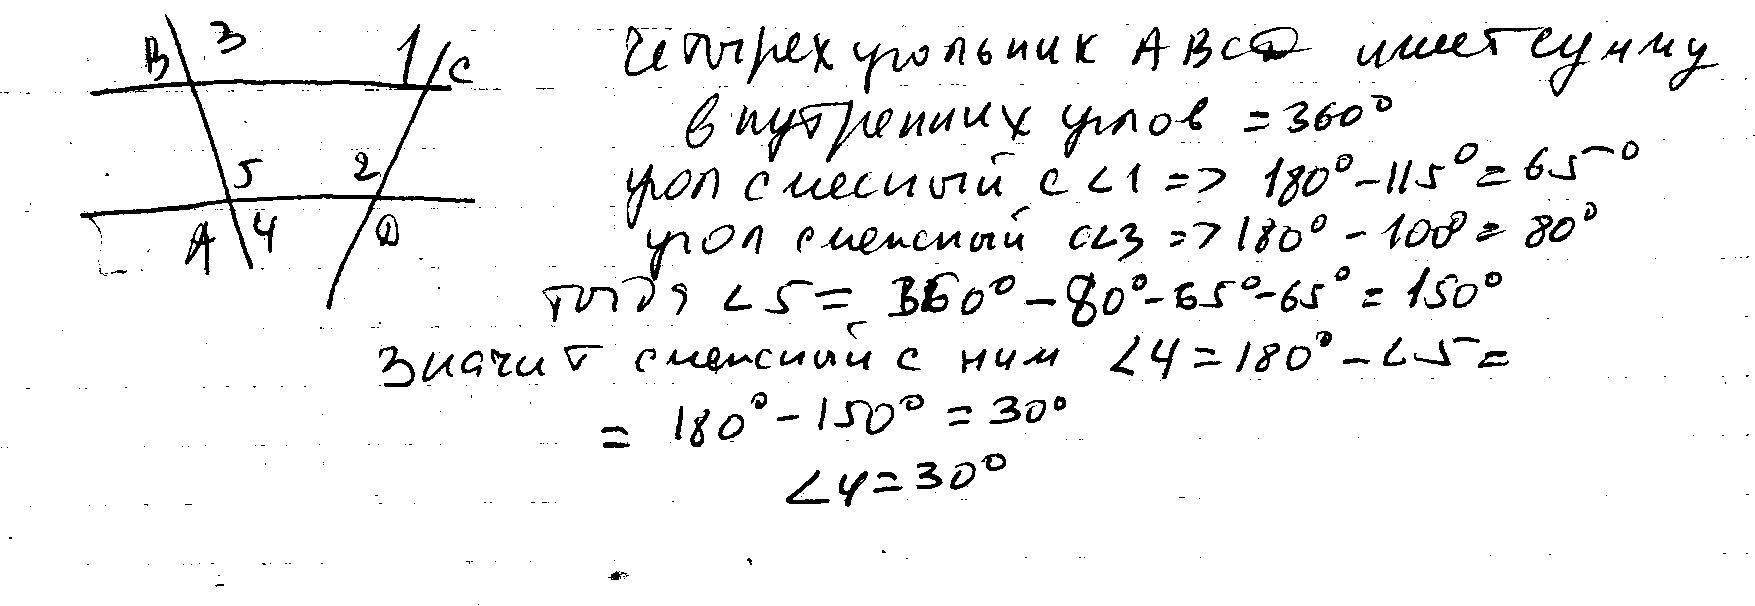 B 3 1 C
5 2
A 4 D
Четырехугольник ABCD имеет сумму
внутренних углов = 360°
угол смесный с ∠1 => 180° - 115° = 65°
угол смежный с ∠3 => 180° - 100 = 80°
тогда ∠5 = 360° - 80° - 65° - 65° = 150°
значит смежный с ним ∠4 = 180° - ∠5 =
= 180° - 150° = 30°
∠4 = 30°